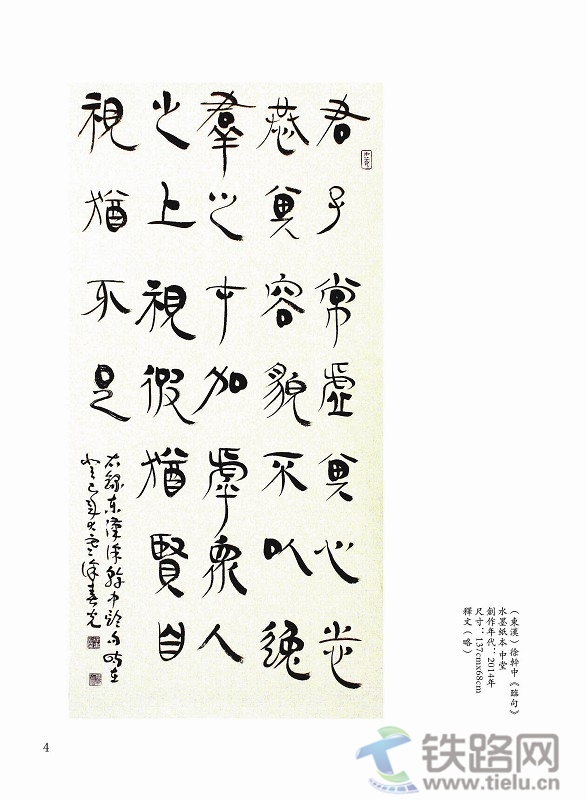 君子常虛其心志
恭其容貌不以逸
羣之才加虖衆人
之上視彼猶賢自
視猶不足
右錄东漢徐幹中論句時在
癸巳
（東漢）徐幹中《臨句》
水墨紙本 中堂
創作年代：2014年
尺寸：137cmx68cm
釋文（略）
4
铁路网
www.tielu.cn